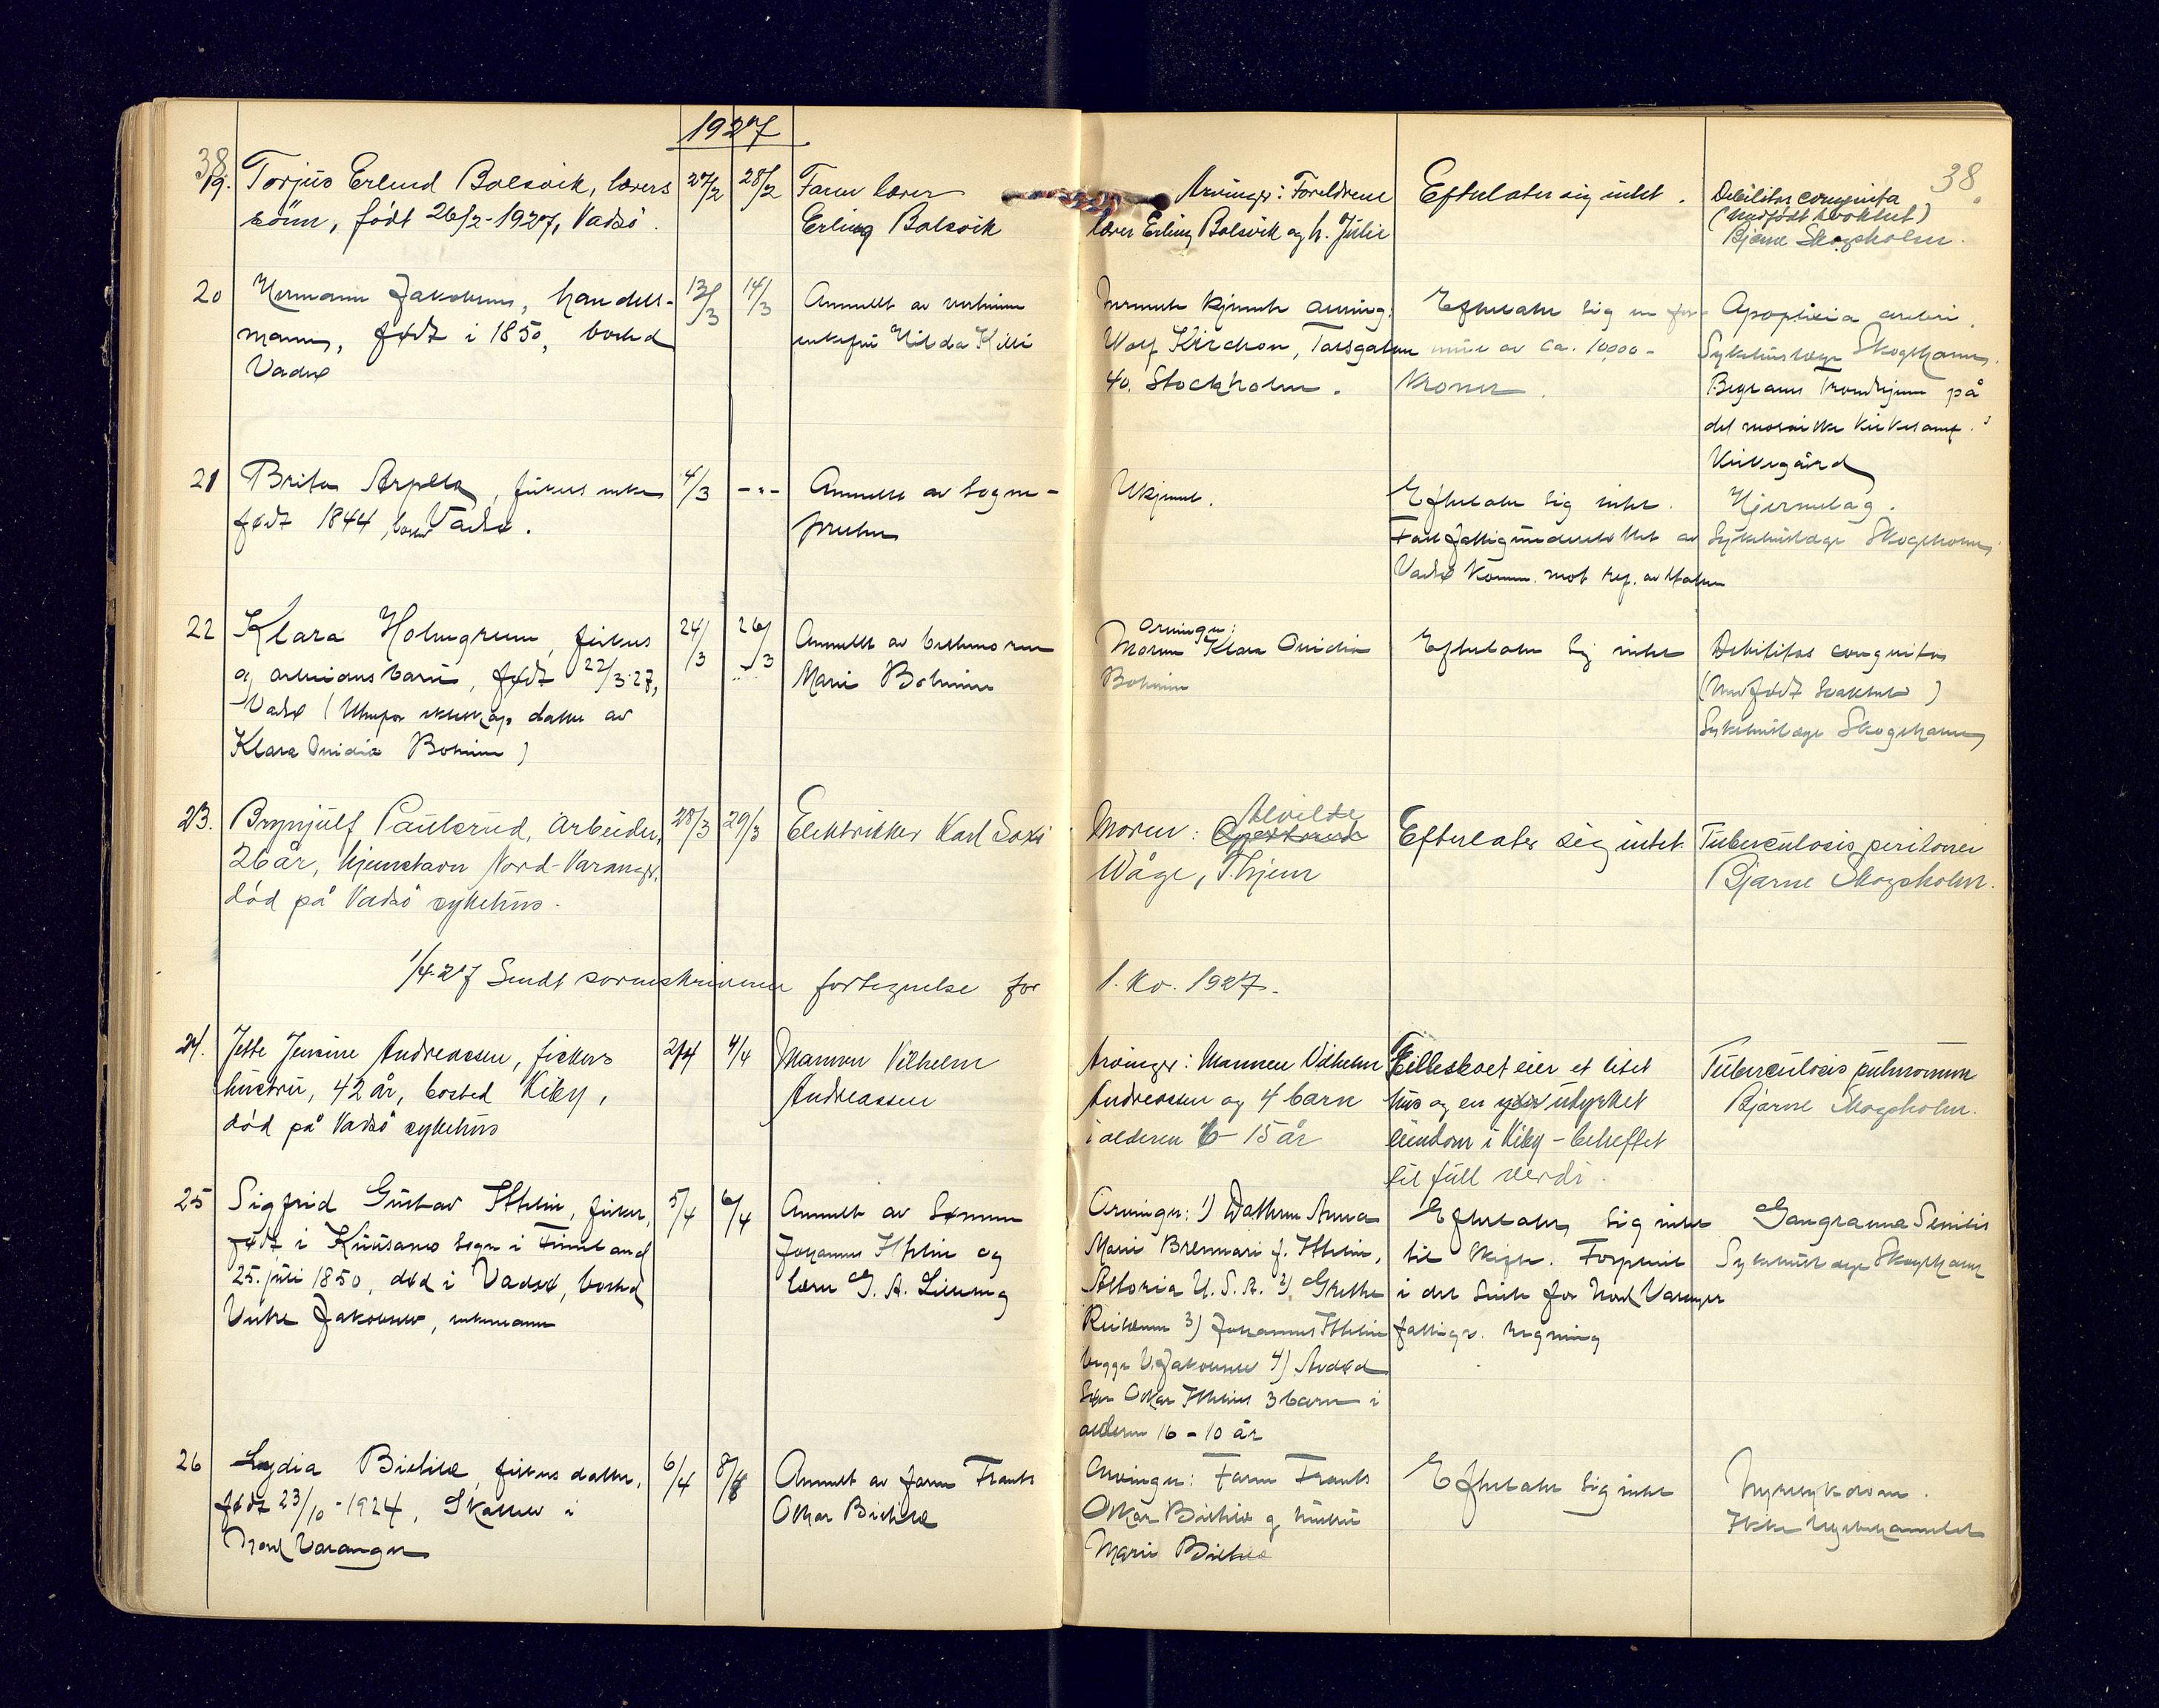 1927
38
38
19. Torjus Erlend Bolsvik, lærers
sönn, födt 26/2-1927, Vadsö.
27/2
28/2
Faren lærer
Erling Bolsvik
Arvinger: Foreldrene
lærer Erling Bolsvik og h. Julie
Efterlater sig intet.
Debilitas congenita
(medfödt svakhet)
Bjarne Skogsholm.
20
Hermann Jakobsen, handels-
mann, født i 1850, bosted
Vadsø
13/3
14/3
Anmeldt av vertinnen
enkefru Hilda Killi
Nærmeste kjente arving:
Wolf Kirschon, Torsgaten
40. Stockholm.
Efterlater sig en for-
mue av ca. 10,000-
kroner.
Apoplexia cerebri.
Sykehuslæge Skogsholm.
Begraves Trondhjem på
det mosaiske kirkesamf.s
kirkegård
21
Brita Arpela, fiskers enke
født 1844, bosted Vadsø.
4/3
-"-
Anmeldt av sogne-
presten
Ukjent.
Efterlater sig intet.
Fast fattigunderstøttet av
Vadsø komm. mot ref. av staten
Hjerneslag.
Sykehuslæge Skogsholm
22
Klara Holmgreen, fiskers
og arbeiders barn, født 22/3-27,
Vadsø (Utenfor ekteskap datter av
Klara Ovidia Bohinen)
24/3
26/3
Anmeldt av bestemoren
Marie Bohinen
Arvinger:
Moren Klara Ovidia
Bohinen
Efterlater sig intet
Debilitas congenita
(Medfødt svakhet)
Sykehuslæge Skogsholm
23.
Brynjulf Paulsrud, arbeider,
26 år, hjemstavn Nord-Varanger.
död på Vadsö sykehus.
28/3
29/3
Elektrikker Karl Saxi
Moren: Alvilde
Wåge, T.hjem
Efterlater sig intet.
Tuberculosis peritonei
Bjarne Skogsholm.
1/4-27 Sendt sorenskriveren fortegnelse for 1. kv. 1927.
24.
Jette Jensine Andreassen, fiskers
hustru, 42 år, bosted Kiby,
död på Vadsö sykehus
2/4
4/4
Mannen Vilhelm
Andreassen
Arvinger: Mannen Vilhelm
Andreassen og 4 barn
i alderen 6-15 år
Fellesboet eier et litet
hus og en utyrket
eiendom i Kiby - beheftet
til full verdi.
Tuberculosis pulmonum
Bjarne Skogsholm.
25
Sigfrid Gustav Ithelin, fisker,
født i Kuusamo sogn i Finnland
25. juli 1850, død i Vadsø, bosted
Vestre Jakobselv, enkemann
5/4
6/4
Anmeldt av sønnen
Johannes Ithelin og
lærer G. A. Lilleeng
Arvinger: 1) Datteren Anna
Marie Brennari f. Ithelin,
Astoria U.S.A. 2) Grethe
3) Johannes Ithelin
begge V. Jakobselv 4) Avdød
søn Oskar Ithelins 3 barn i
alderen 16-10 år
Efterlater sig intet
til skifte. Forpleiet
i det siste for Nord Varanger
fattigv. regning
Gangræna Senilis
Sykehuslæge Skogsholm
26
Lydia Bietilæ, fiskers datter,
født 23/10-1924, Skallelv i
Nord Varanger
6/4
8/4
Anmeldt av faren Frants
Oskar Bietilæ
Arvinger: Faren Frants
Oskar Bietilæ og hustru
Marie Bietilæ
Efterlater sig intet
Nyresykdom.
Ikke lægebehandlet